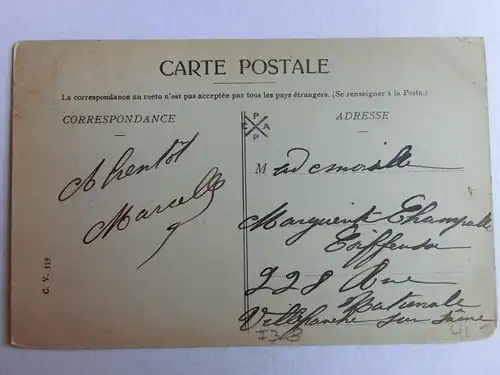 CARTE POSTALE
La correspondance au recto n'est pas acceptée par tous les pays étrangers. (Se renseigner à la Poste.)
CORRESPONDANCE
ADRESSE
E P A P
A bientôt
Marcelle
Mademoiselle
Marguerite Champalle
Coiffeuse
228 Rue
Nationale
Villefranche sur Saône
C. V. 359